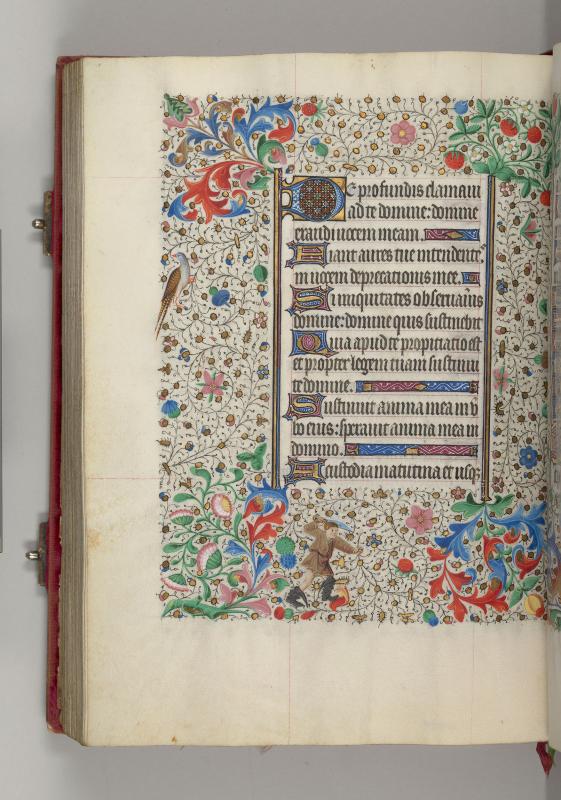 De profundis clamaui
ad te domine: domine
exaudi uocem meam.
Fiant aures tue intendentes,
in uocem deprecationis mee.
Si iniquitates obseruaueris
domine: domine quis sustinebit
Quia apud te propitiatio est
et propter legem tuam sustinui
te domine.
Sustinuit anima mea in v
bo eius: sperauit anima mea in
domino.
A custodia matutina et usq